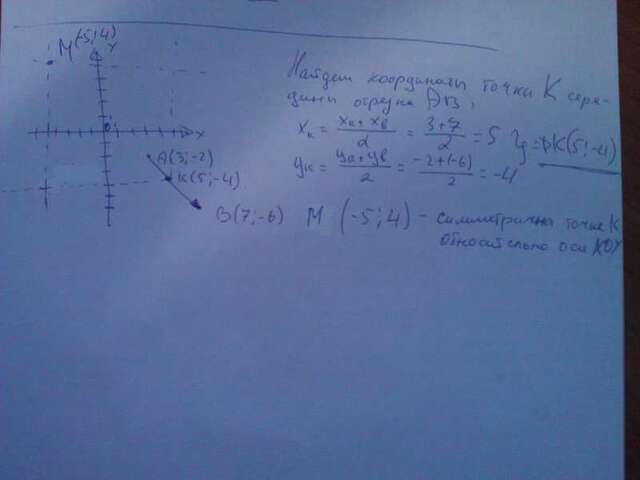 M(-5;4)
y
0
x
A(3;-2)
K(5;-4)
B(7;-6)
Найдем координаты точки K сере-
дины отрезка AB,
xк = xa + xв / 2 = 3+7 / 2 = 5 } => K(5;-4)
yк = ya + yв / 2 = -2+(-6) / 2 = -4
M (-5;4) - симметрична точке K
относительно оси XOY